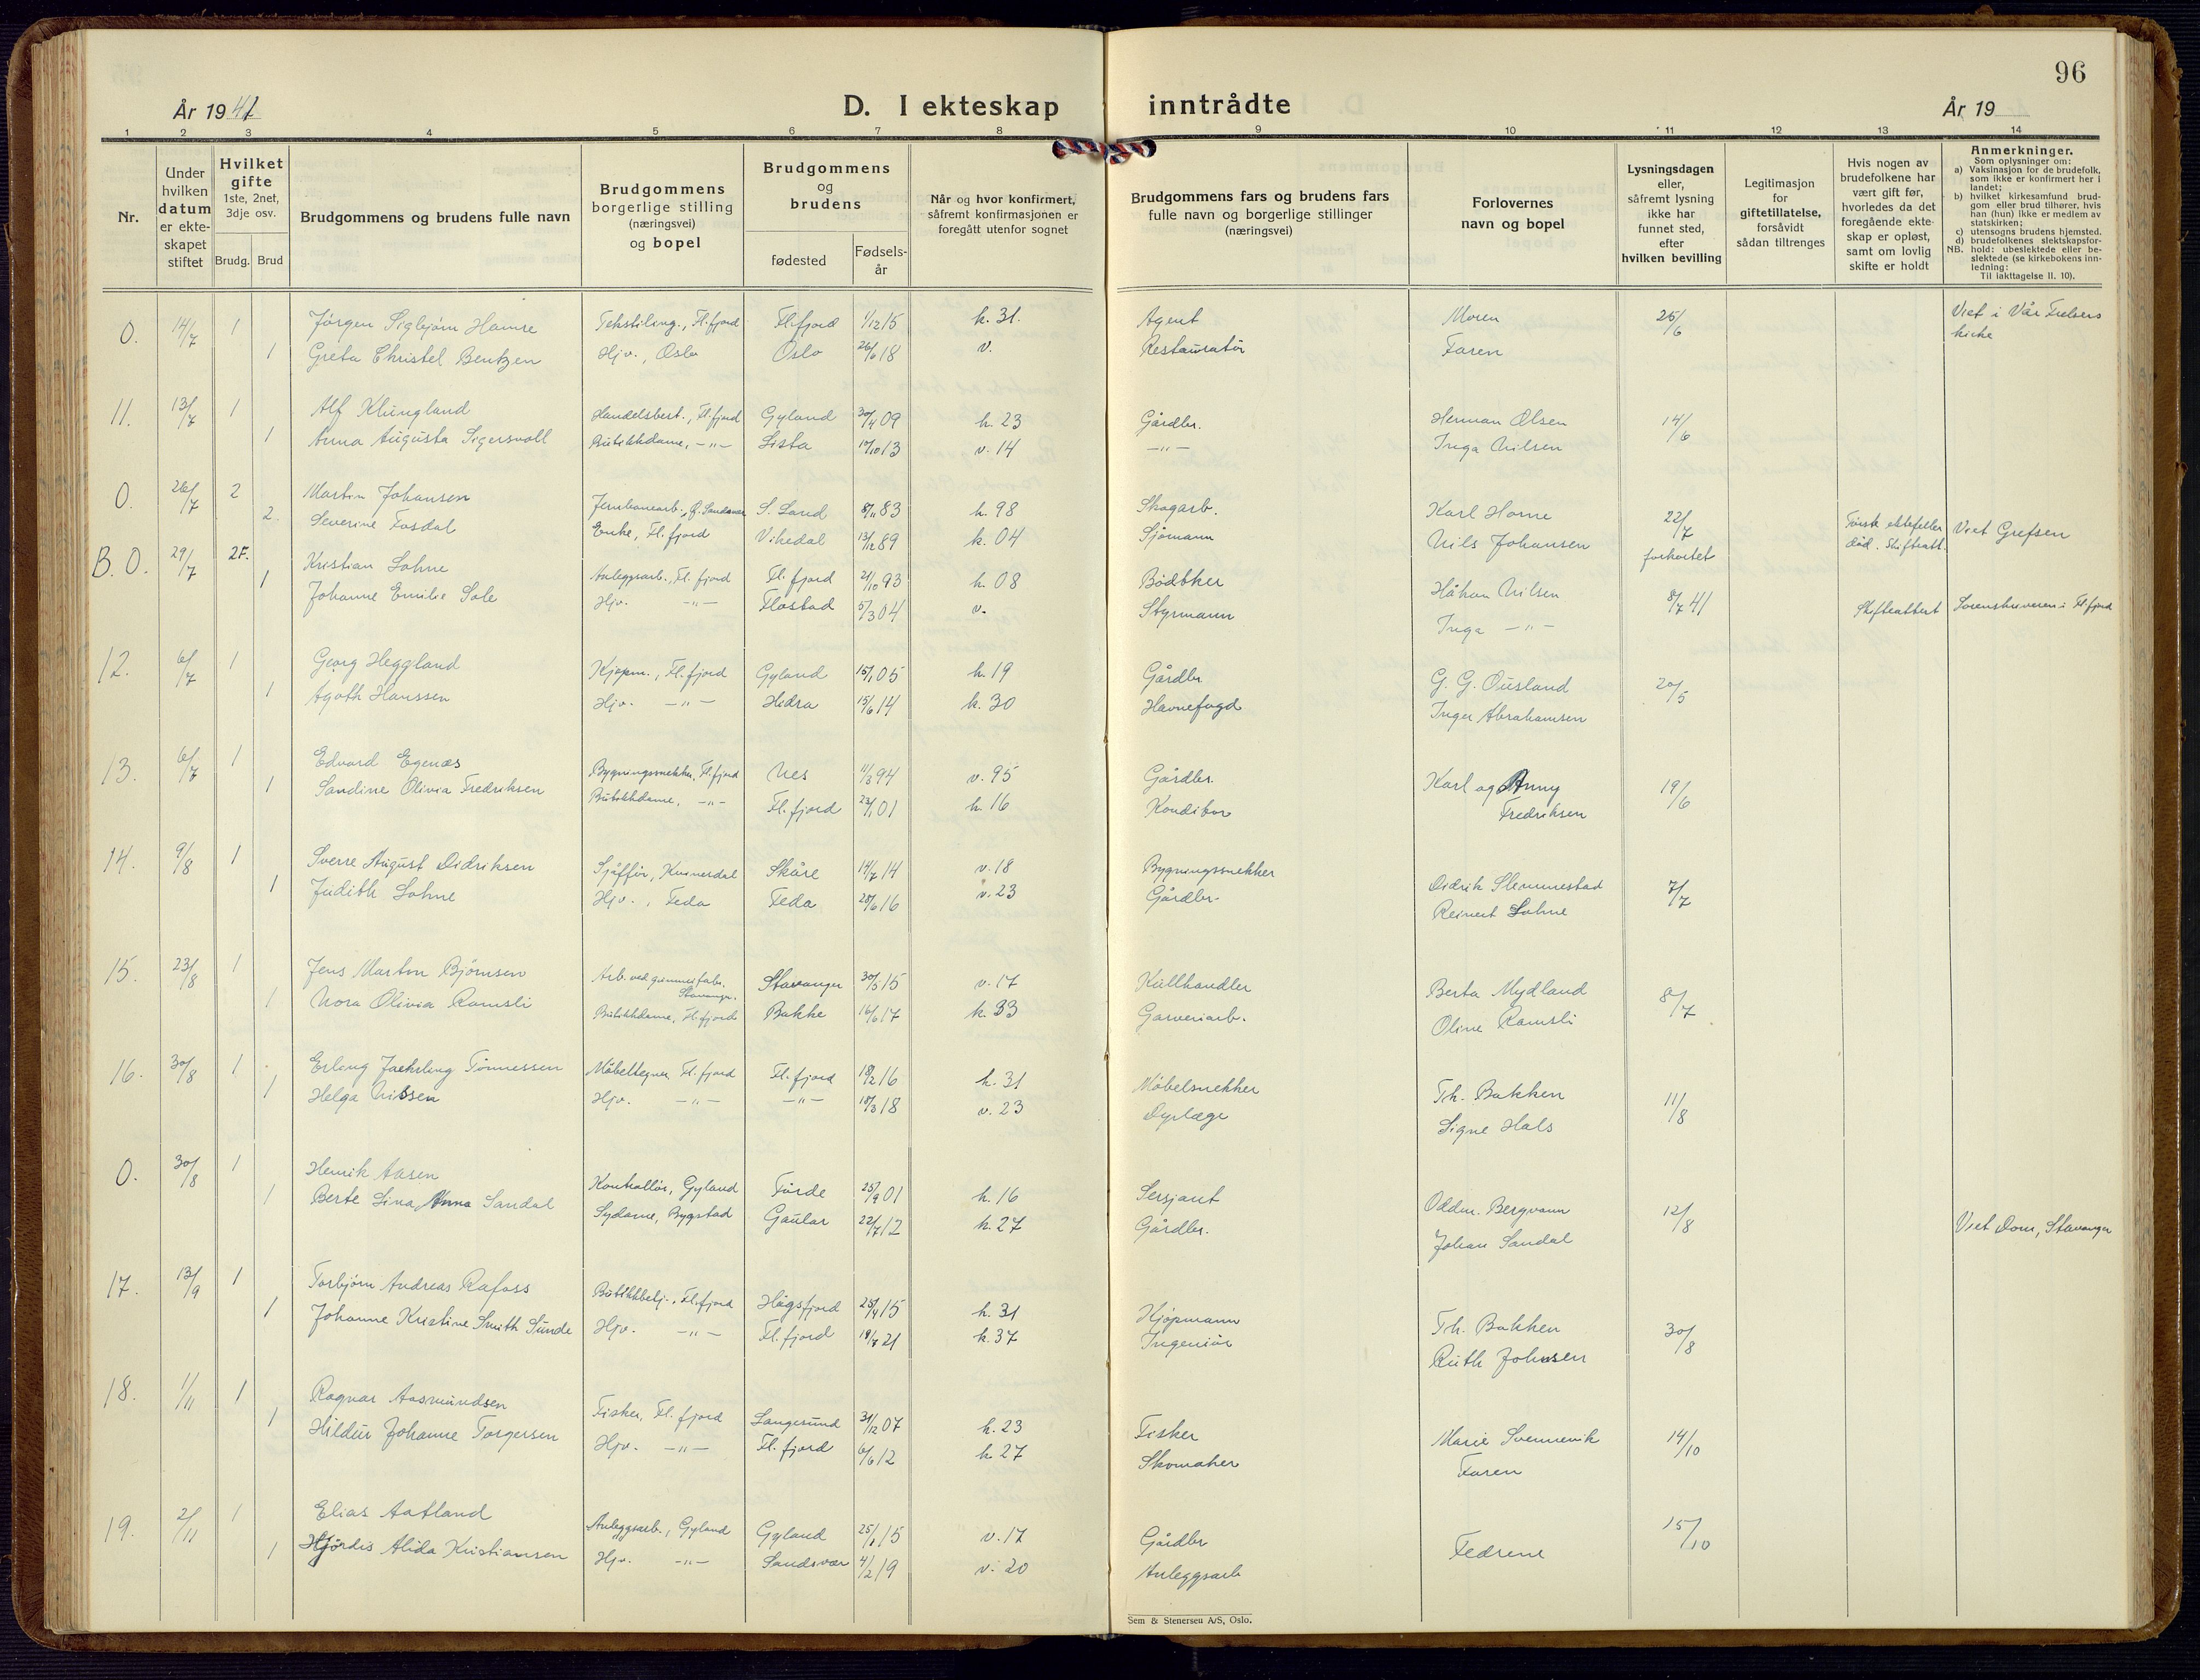 96
År 1941
D. I ekteskap inntrådte
År 19
1 2 3 4 5 6 7 8 9 10 11 12 13 14
Nr.
Under hvilken datum er ekteskapet stiftet
Hvilket gifte 1ste, 2net, 3dje osv.
Brudg. Brud
Brudgommens og brudens fulle navn
Brudgommens borgerlige stilling (næringsvei) og bopel
Brudgommens og brudens
fødested
Fødselsår
Når og hvor konfirmert, såfremt konfirmasjonen er foregått utenfor sognet
Brudgommens fars og brudens fars fulle navn og borgerlige stillinger (næringsvei)
Forlovernes navn og bopel
Lysningsdagen eller, såfremt lysning ikke har funnet sted, efter hvilken bevilling
Legitimasjon for giftetillatelse, forsåvidt sådan tiltrenges
Hvis nogen av brudefolkene har vært gift før, hvorledes da det foregående ekteskap er opløst, samt om lovlig skifte er holdt
Anmerkninger.
Som oplysninger om:
a) Vaksinasjon for de brudefolk, som ikke er konfirmert her i landet;
b) hvilket kirkesamfund brudgom eller brud tilhører, hvis han (hun) ikke er medlem av statskirken;
c) utensogns brudens hjemsted.
d) brudefolkenes slektskapsforhold: ubeslektede eller beslektede (se kirkebokens innledning:
NB. Til iakttagelse II. 10).
0. 14/7 1 Jørgen Sigbjørn Hamre Tekstiling., Fl.fjord Fl.fjord 1/12 15 k. 31. Agent Moren 25/6 Viet i Vår Frelsers kirke
1 Greta Christel Bentzen Hjv., Oslo Oslo 26/6 18 v. Restauratør Faren
11. 13/7 1 Alf Klungland Handelsbest., Fl.fjord Gyland 30/4 09 k. 23 Gårdbr. Herman Olsen 14/6
1 Anna Augusta Sigersvoll Butikkdame, -"- Lista 17/10 13 v. 14 -"- Inga Nilsen
0. 26/7 2 Martin Johansen S. Land 8/11 83 k. 98 Skogarb. Karl Horne 22/7 forkortet Første ektefeller død. Skifteatt. Viet Grefsen
2. Severine Fosdal Enke, Fl.fjord Vikedal 13/12 89 k. 04 Sjømann Nils Johansen
B. 0. 29/7 2F. Kristian Lohne Anleggsarb., Fl.fjord Fl.fjord 21/10 93 k. 08 Bødkker Håkon Nilsen 8/7 41 Skifteattest Sorenskriveren i Fl.fjord
1 Johanne Emilie Sole Hjv. -"- Flostad 5/3 04 v. Styrmann Inga -"-
12. 6/7 1 Georg Heggland Kjøpm., Fl.fjord Gyland 15/1 05 k. 19 Gårdbr. G. G. Ousland 20/5
1 Agoth Hanssen Hjv. -"- Hidra 15/6 14 k. 30 Havnefogd Inger Abrahamsen
13. 6/7 1 Edvard Egenæs Bygningssnekker, Fl.fjord Nes 11/3 94 v. 95 Gårdbr. Karl og Anny Fredriksen 19/6
1 Sandine Olivia Fredriksen Butikkdame, -"- Fl.fjord 23/1 01 k. 16 Konditor
14. 9/8 1 Sverre August Didriksen Sjåffør, Kvinesdal Skåre 14/7 14 v. 18 Bygningssnekker Didrik Slemmestad 7/7
1 Judith Lohne Hjv., Feda Feda 28/6 16 v. 23 Gårdbr. Reinert Lohne
15. 23/8 1 Jens Martin Bjørnsen Arb. ved gummifabr. Stavanger. Stavanger 30/5 15 v. 17 Kullhandler Berta Mydland 8/7
1 Nora Olivia Ramsli Butikkdame, Fl.fjord Bakke 16/6 17 k. 33 Garveriarb. Oline Ramsli
16. 30/8 1 Erling Jaehrling Tønnessen Møbeltegner, Fl.fjord Fl.fjord 18/2 16 k. 31 Møbelsnekker Th. Bakken 11/8
1 Helga Nissen Hjv. -"- -"- 18/3 18 v. 23 Dyrlæge Signe Hals
0. 30/8 1 Henrik Aasen Kontrollør, Gyland Førde 25/9 01 k. 16 Sersjant Oddm. Bergvann 12/8
1 Berte Lina Anna Sandal Sydame, Bygstad Gaular 22/7 12 k. 27 Gårdbr. Johan Sandal Viet Dom, Stavanger
17. 13/9 1 Torbjørn Andreas Rafoss Butikkbetj., Fl.fjord Høgsfjord 25/4 15 k. 31 Kjøpmann Th. Bakken 30/8
1 Johanne Kristine Smith Sunde Hjv. -"- Fl.fjord 18/7 21 k. 37 Ingeniør Ruth Johnsen
18. 1/11 1 Ragnar Aasmundsen Fisker, Fl.fjord Langesund 31/12 07 k. 23 Fisker Marie Svennevik 14/10
1 Hildur Johanne Torgersen Hjv. -"- Fl.fjord 6/6 12 k. 27 Skomaker Faren
19. 2/11 1 Elias Aatland Anleggsarb., Gyland Gyland 25/1 15 v. 17 Gårdbr Fedrene 15/10
1 Hjørdis Alida Kristiansen Hjv. -"- Sandsvær 4/2 19 v. 20 Anleggsarb
Sem & Stenersen A/S, Oslo.